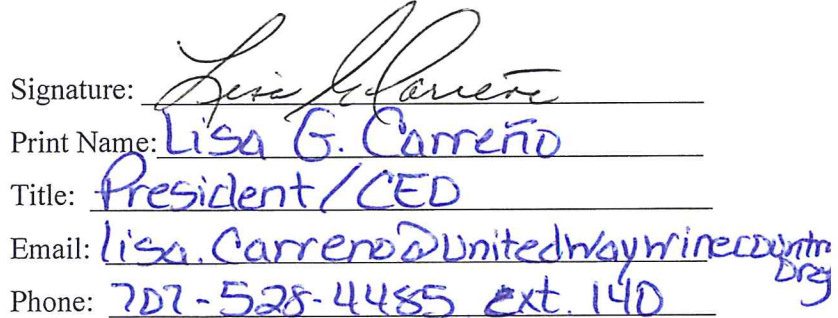 Signature: Lisa G Carreño
Print Name: Lisa G. Carreño
Title: President/CEO
Email: lisa.carreno@unitedwaywinecountry.org
Phone: 707-528-4485 ext. 140